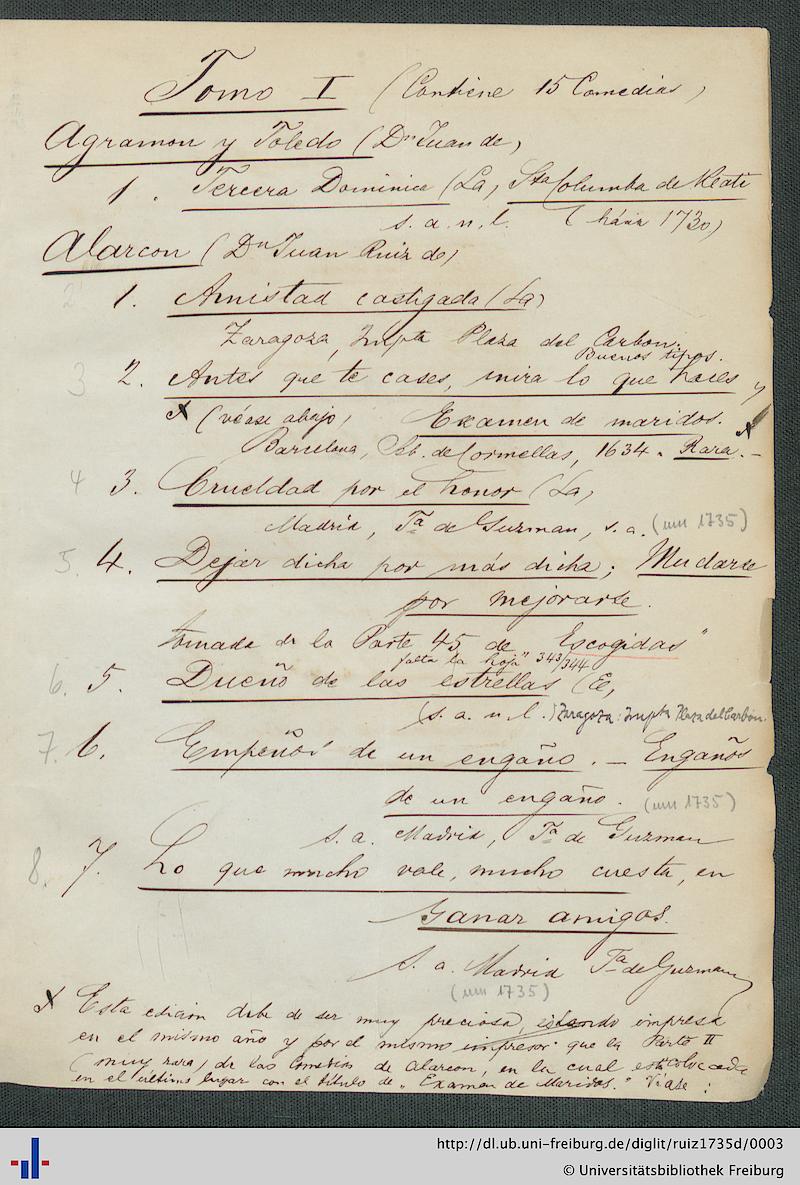 Tomo I (Contiene 15 Comedias)
Agramon y Toledo (Dn Juan de)
1. Tercera Dominica (La, Sta Columba de Reati
s. a. n. l. (hácia 1730)
Alarcon (Dn Juan Ruiz de)
2 1. Amistad castigada (La)
Zaragoza, Impta Plaza del Carbon.
Buenos tipos.
3 2. Antes que te cases, mira lo que haces y
x (véase abajo) Examen de maridos. x
Barcelona, Seb. de Cormellas, 1634. Rara. –
4 3. Crueldad por el honor (La,
Madrid, Ta de Guzman, s. a. (um 1735)
5. 4. Dejar dicha por más dicha; Mudarse
por mejorarse.
tomada de la Parte 45 de "Escogidas"
falta la hoja 343/344
6. 5. Dueño de las estrellas (El,
(s. a. n. l.) Zaragoza: Impta Plaza del Carbon.
7. 6. Empeños de un engaño. – Engaños
de un engaño. (um 1735)
s. a. Madrid, Ta de Guzman
8. 7. Lo que mucho vale, mucho cuesta, en
Ganar amigos.
s. a. Madrid Ta de Guzman
(um 1735)
x Esta edicion debe de ser muy preciosa, estando impresa
en el mismo año y por el mismo impresor que la Parte II
(muy rara) de las Comedias de Alarcon, en la cual está colocada
en el último lugar con el título de "Examen de Maridos." Véase:
http://dl.ub.uni-freiburg.de/diglit/ruiz1735d/0003
© Universitätsbibliothek Freiburg